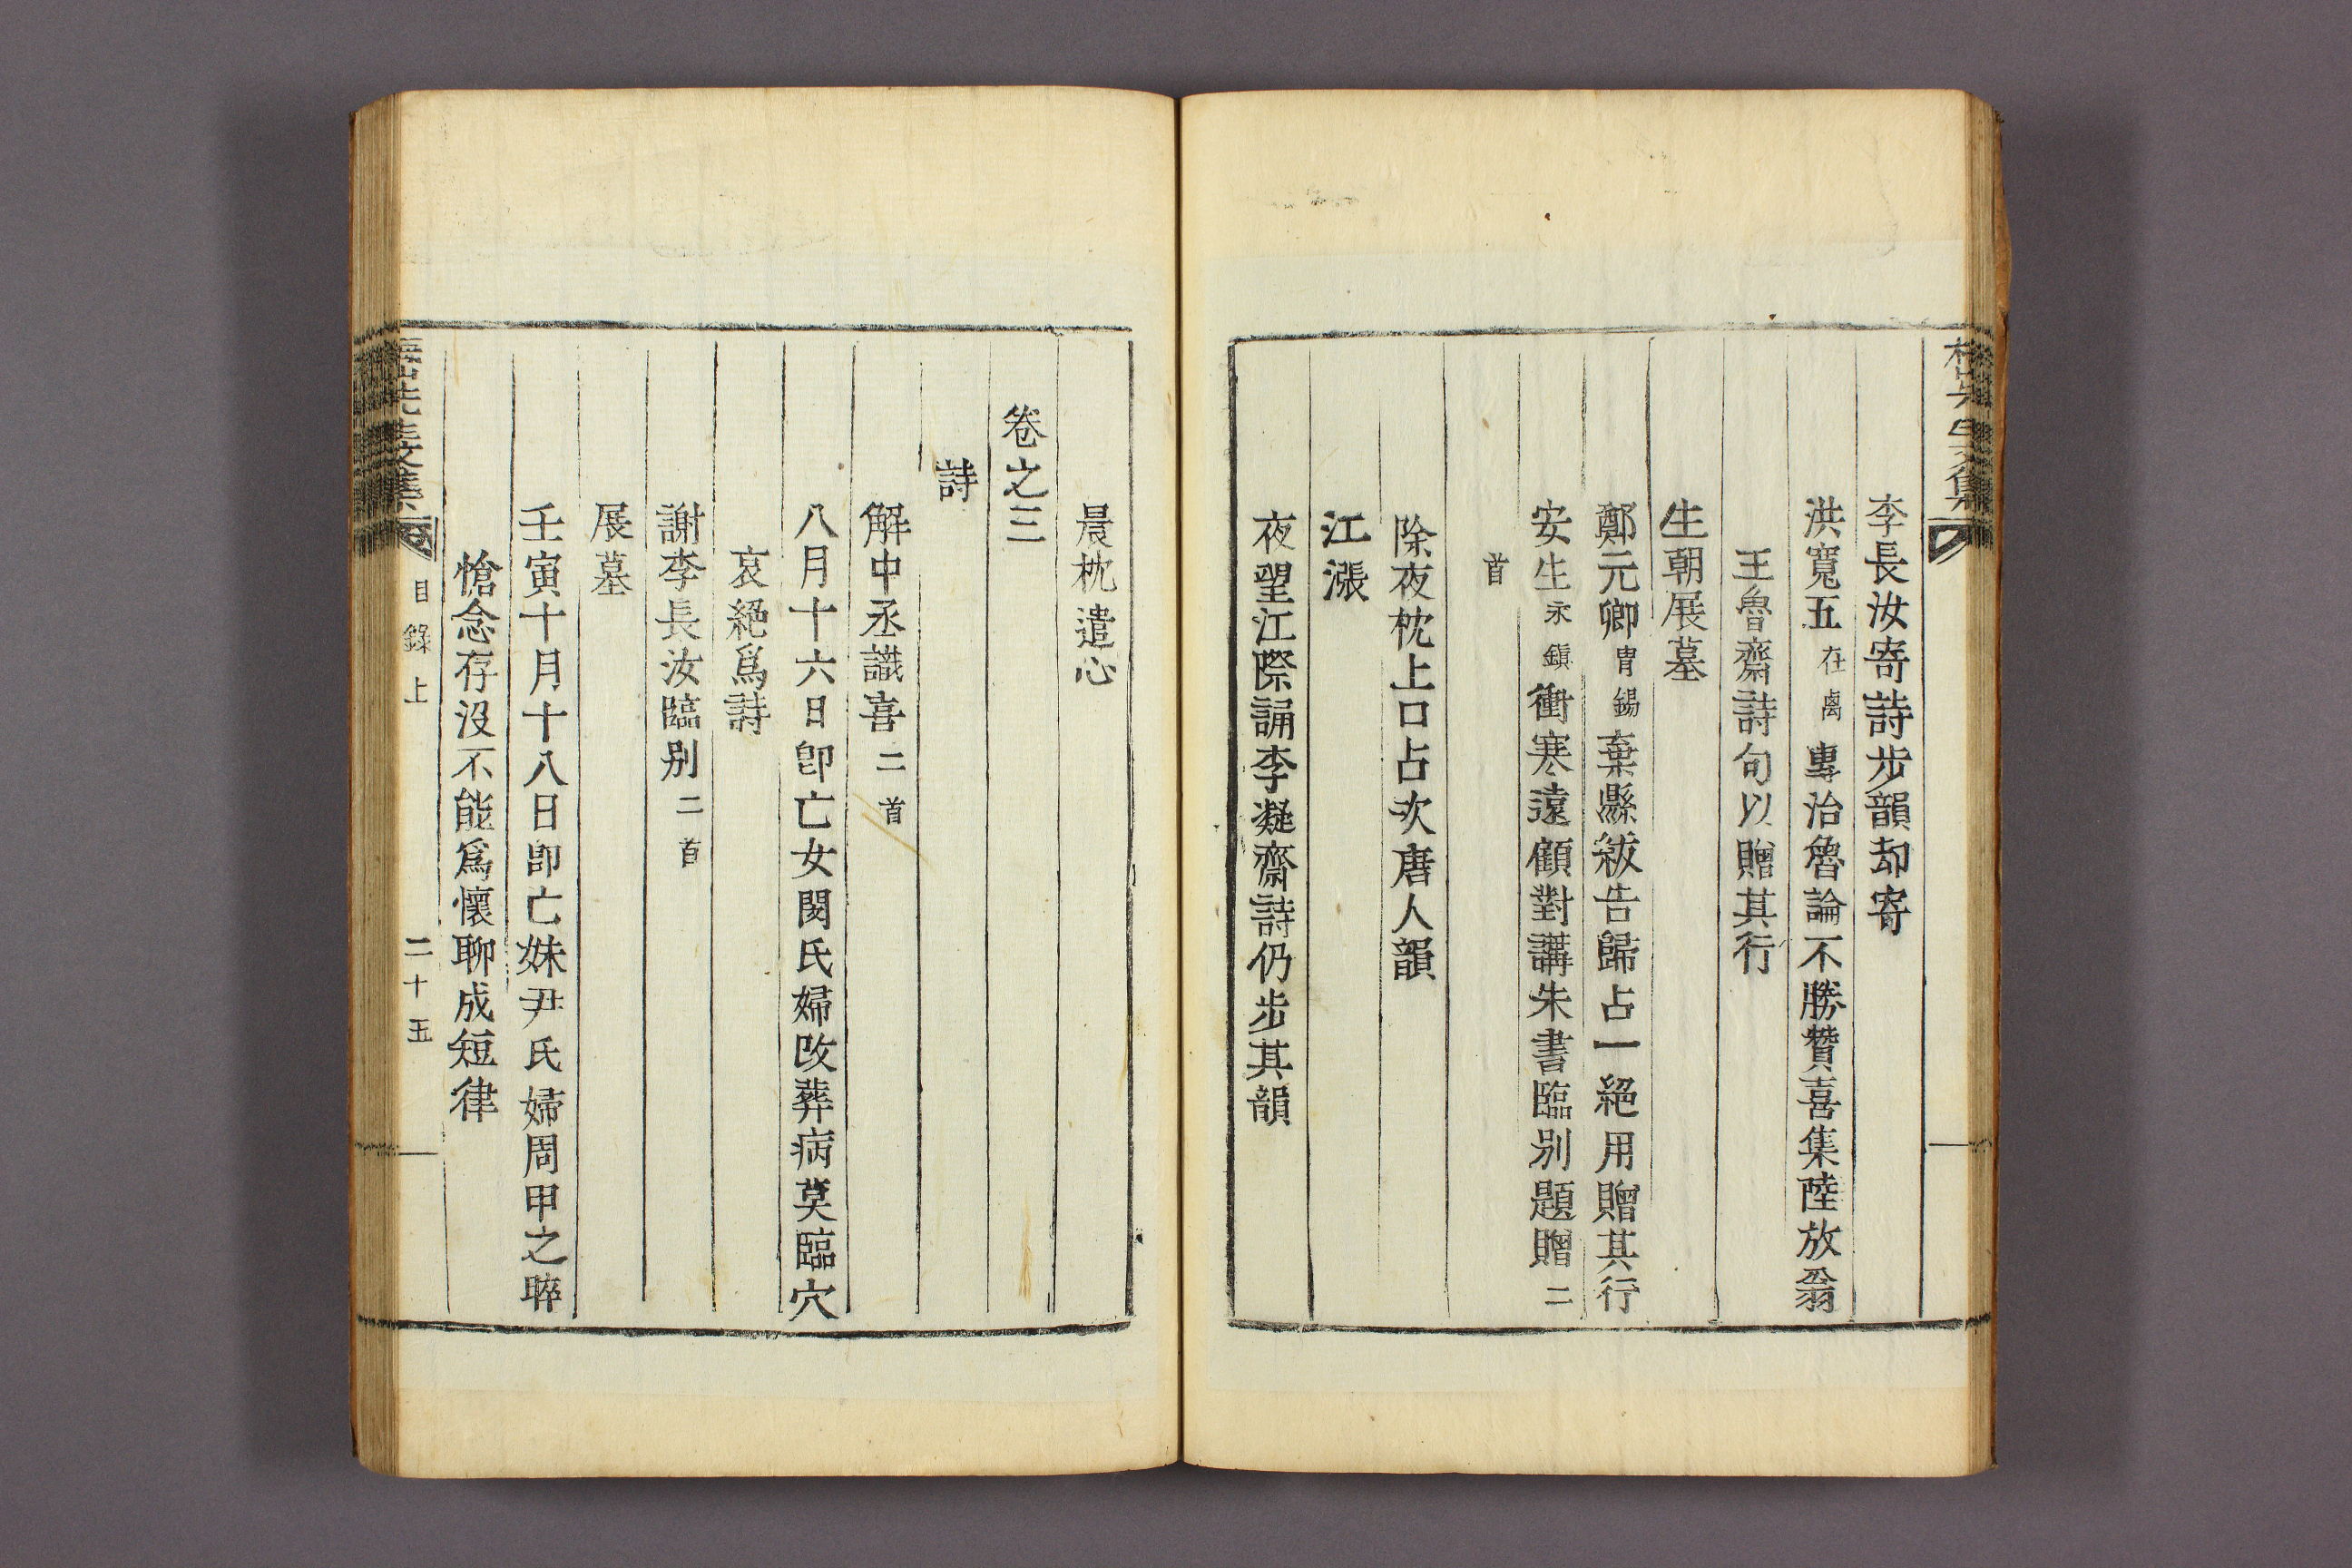 李長汝寄詩步韻却寄
洪寬五在禼專治魯論不勝贊喜集陸放翁
王魯齋詩句以贈其行
生朝展墓
鄭元卿胄錫棄縣紱告歸占一絕用贈其行
安生永鎭衝寒遠顧對講朱書臨別題贈二
首
除夜枕上口占次唐人韻
江漲
夜望江際誦李凝齋詩仍步其韻
晨枕遣心
卷之三
詩
解中丞識喜二首
八月十六日卽亡女閔氏婦改葬病莫臨穴
哀絕爲詩
謝李長汝臨別二首
展墓
壬寅十月十八日卽亡妹尹氏婦周甲之晬
愴念存沒不能爲懷聊成短律
目錄上
二十五